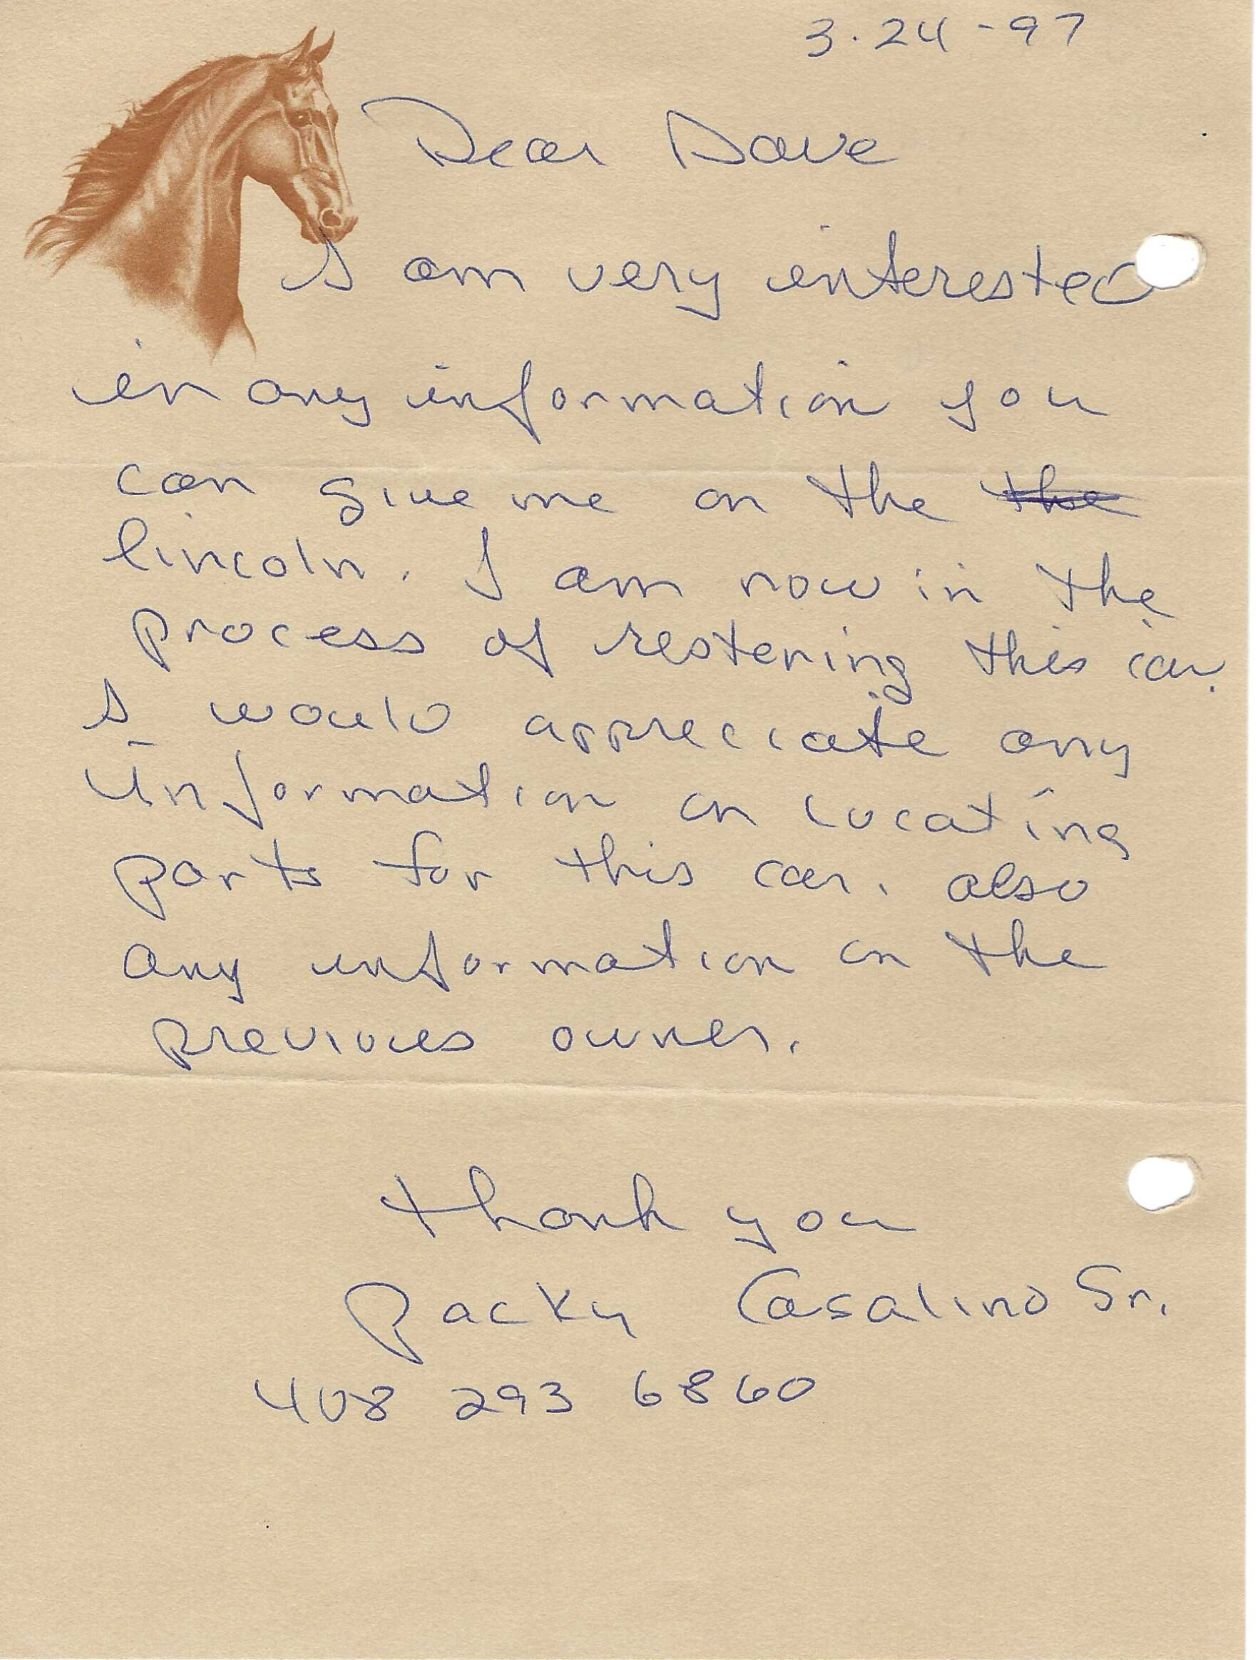 3-24-97
Dear Dave
I am very interested
in any information you
can give me on the the
lincoln. I am now in the
process of restering this car.
I would appreciate any
Information on locating
parts for this car. also
any information on the
previous owner.
thank you
Packy Casalino Sr.
408 293 6860